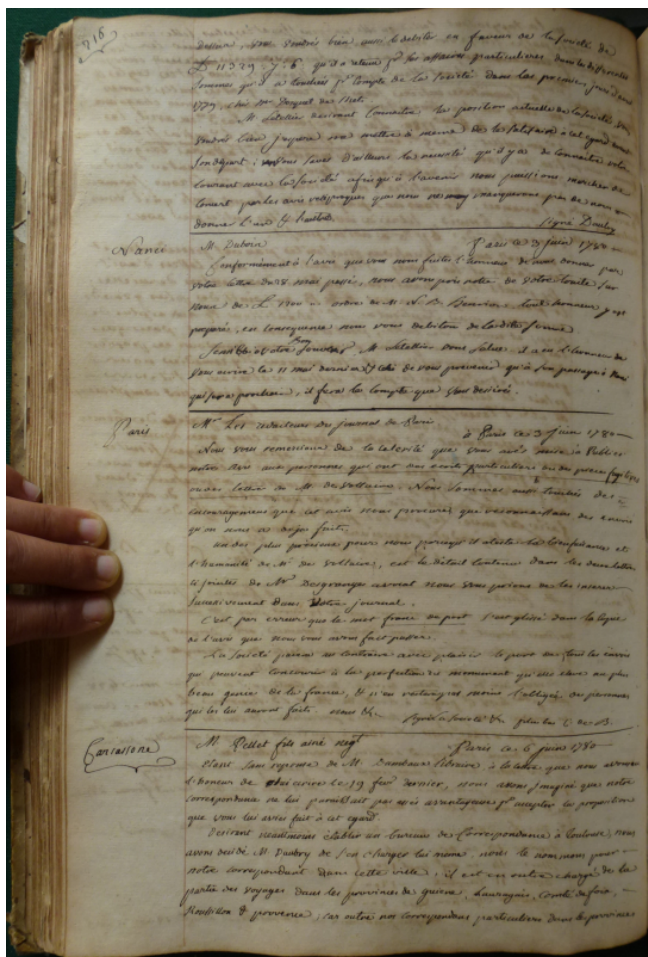 716
dessein, vous voudrés bien aussi le débiter en faveur de la société de
11329. 7. 6 qu'il a retenu pr. ses affaires particulieres, dans les différentes
sommes qu'il a touchées pr. compte de la Société dans les premiers jours
1779, chés Mr.
M. Letellier desirant connoitre la position actuelle de la société vous
voudrés bien Jespere me mettre à meme de le satisfaire à cet egard avant
son départ: vous savés d'ailleurs la necessité qu'il y a de connoitre votre
courant avec la société afin qu'à l'avenir nous puissions marcher de
concert par les avis reciproques que nous ne manquerons pas de nous
donner l'un & l'autre. Signé Daubry
Nanci M. Dubois Paris ce 3 Juin 1780
Conformément à l'avis que vous nous faites l'honneur de nous donner par
votre lettre du 28 mais passé, nous avons pris note de votre traite sur
nous de L. ordre de M. N. B. tout honneur y est
préparé, en consequence nous vous debitons de la dite somme
Sensible à votre bon souvenir M. Letellier vous salue. il a eu l'honneur de
vous écrire le 11 mai dernier de vous prévenir qu'à son passage à Nanci
qui sera prochain, il fera le compte que vous desirés.
Paris Mrs. Les rédacteurs du journal de Paris à Paris ce 3 Juin 1780
Nous vous remercions de la celerité que vous avés mise à Publier
notre avis aux personnes qui ont des écrits particuliers ou des pieces fugitives
ou des lettres de M. de Voltaire. Nous sommes aussi touchés des
encouragemens que cet avis nous procure, que reconnaissans des envois
qu'on nous a deja faits.
un des plus précieux pour nous puisqu'il atteste la bienfaisance et
l'humanité de Mr. de Voltaire, est le détail contenu dans les deux lettres
ci jointes de Mr. Desgranges avocat nous vous prions de les inserer
successivement dans Votre journal.
C'est par erreur que le mot franc de port s'est glissé dans la copie
de l'avis que nous vous avons fait passer.
La Société paiera au contraire avec plaisir le port de tous les envois
qui peuvent concourir à la perfection du monument qu'elle eleve au plus
beau genie de la france, & n'en restera pas moins l'obligée des personnes
qui les lui auront faits. nous &c. Signé la société &c plus bas C. de B.
Carcassone M. Pellet fils ainé negt. Paris ce 6 juin 1780
Etant sans reponse de M. libraire à la lettre que nous avons eu
l'honneur de lui écrire le 19 fevr. dernier, nous avons imaginé que notre
correspondance ne lui paroissait pas assés avantageuse pr. accepter la proposition
que vous lui aviés fait à cet egard.
Desirant néanmoins établir un bureau de Correspondance à Toulouse, nous
avons decidé M. Daubry de s'en charger lui même, nous le nommons pour
notre correspondant dans cette ville; il est en outre chargé de la
partie des voyages dans les provinces de guienne, Lauragais, Comté de foix,
Roussillon & provence, car outre nos correspondans particuliers dans les provinces